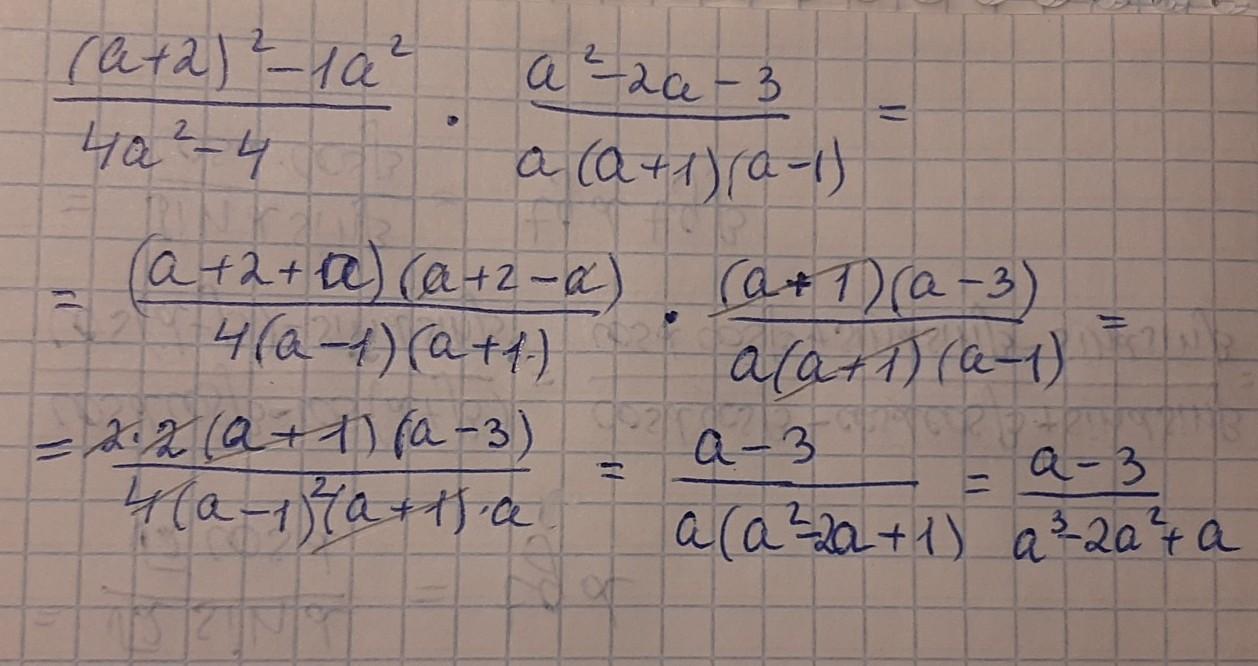 (a+2)²-1a² / 4a²-4 · a²-2a-3 / a(a+1)(a-1) =
= (a+2+a)(a+2-a) / 4(a-1)(a+1) · (a+1)(a-3) / a(a+1)(a-1) =
= 2·2(a+1)(a-3) / 4(a-1)²(a+1)·a = a-3 / a(a²-2a+1) = a-3 / a³-2a²+a